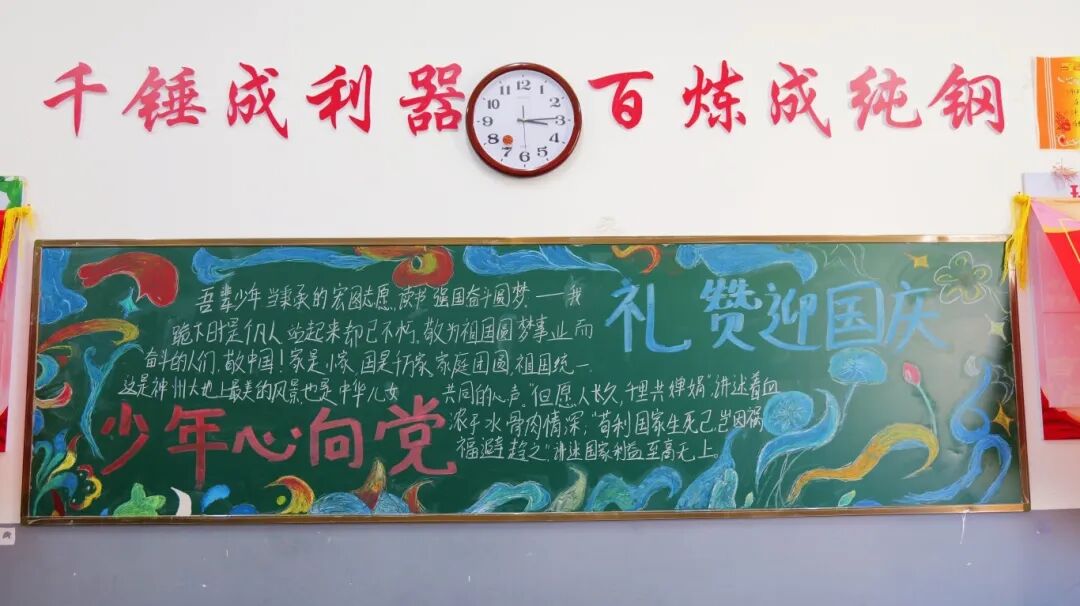 千锤成利器 百炼成纯钢
12
1
2
3
4
5
6
7
8
9
10
11
礼赞迎国庆
吾辈少年当秉承的宏图志愿,读书强国奋斗圆梦——我
跪下时是个凡人 站起来却已不朽,敬为祖国圆梦事业而
奋斗的人们,敬中国!家是小家,国是千万家,家庭团圆,祖国统一.
这是神州大地上最美的风景也是中华儿女 共同的心声,“但愿人长久,千里共婵娟”,讲述着血
浓于水,骨肉情深,“苟利国家生死已,岂因祸
福避趋之”,讲述国家利益至高无上。
少年心向党